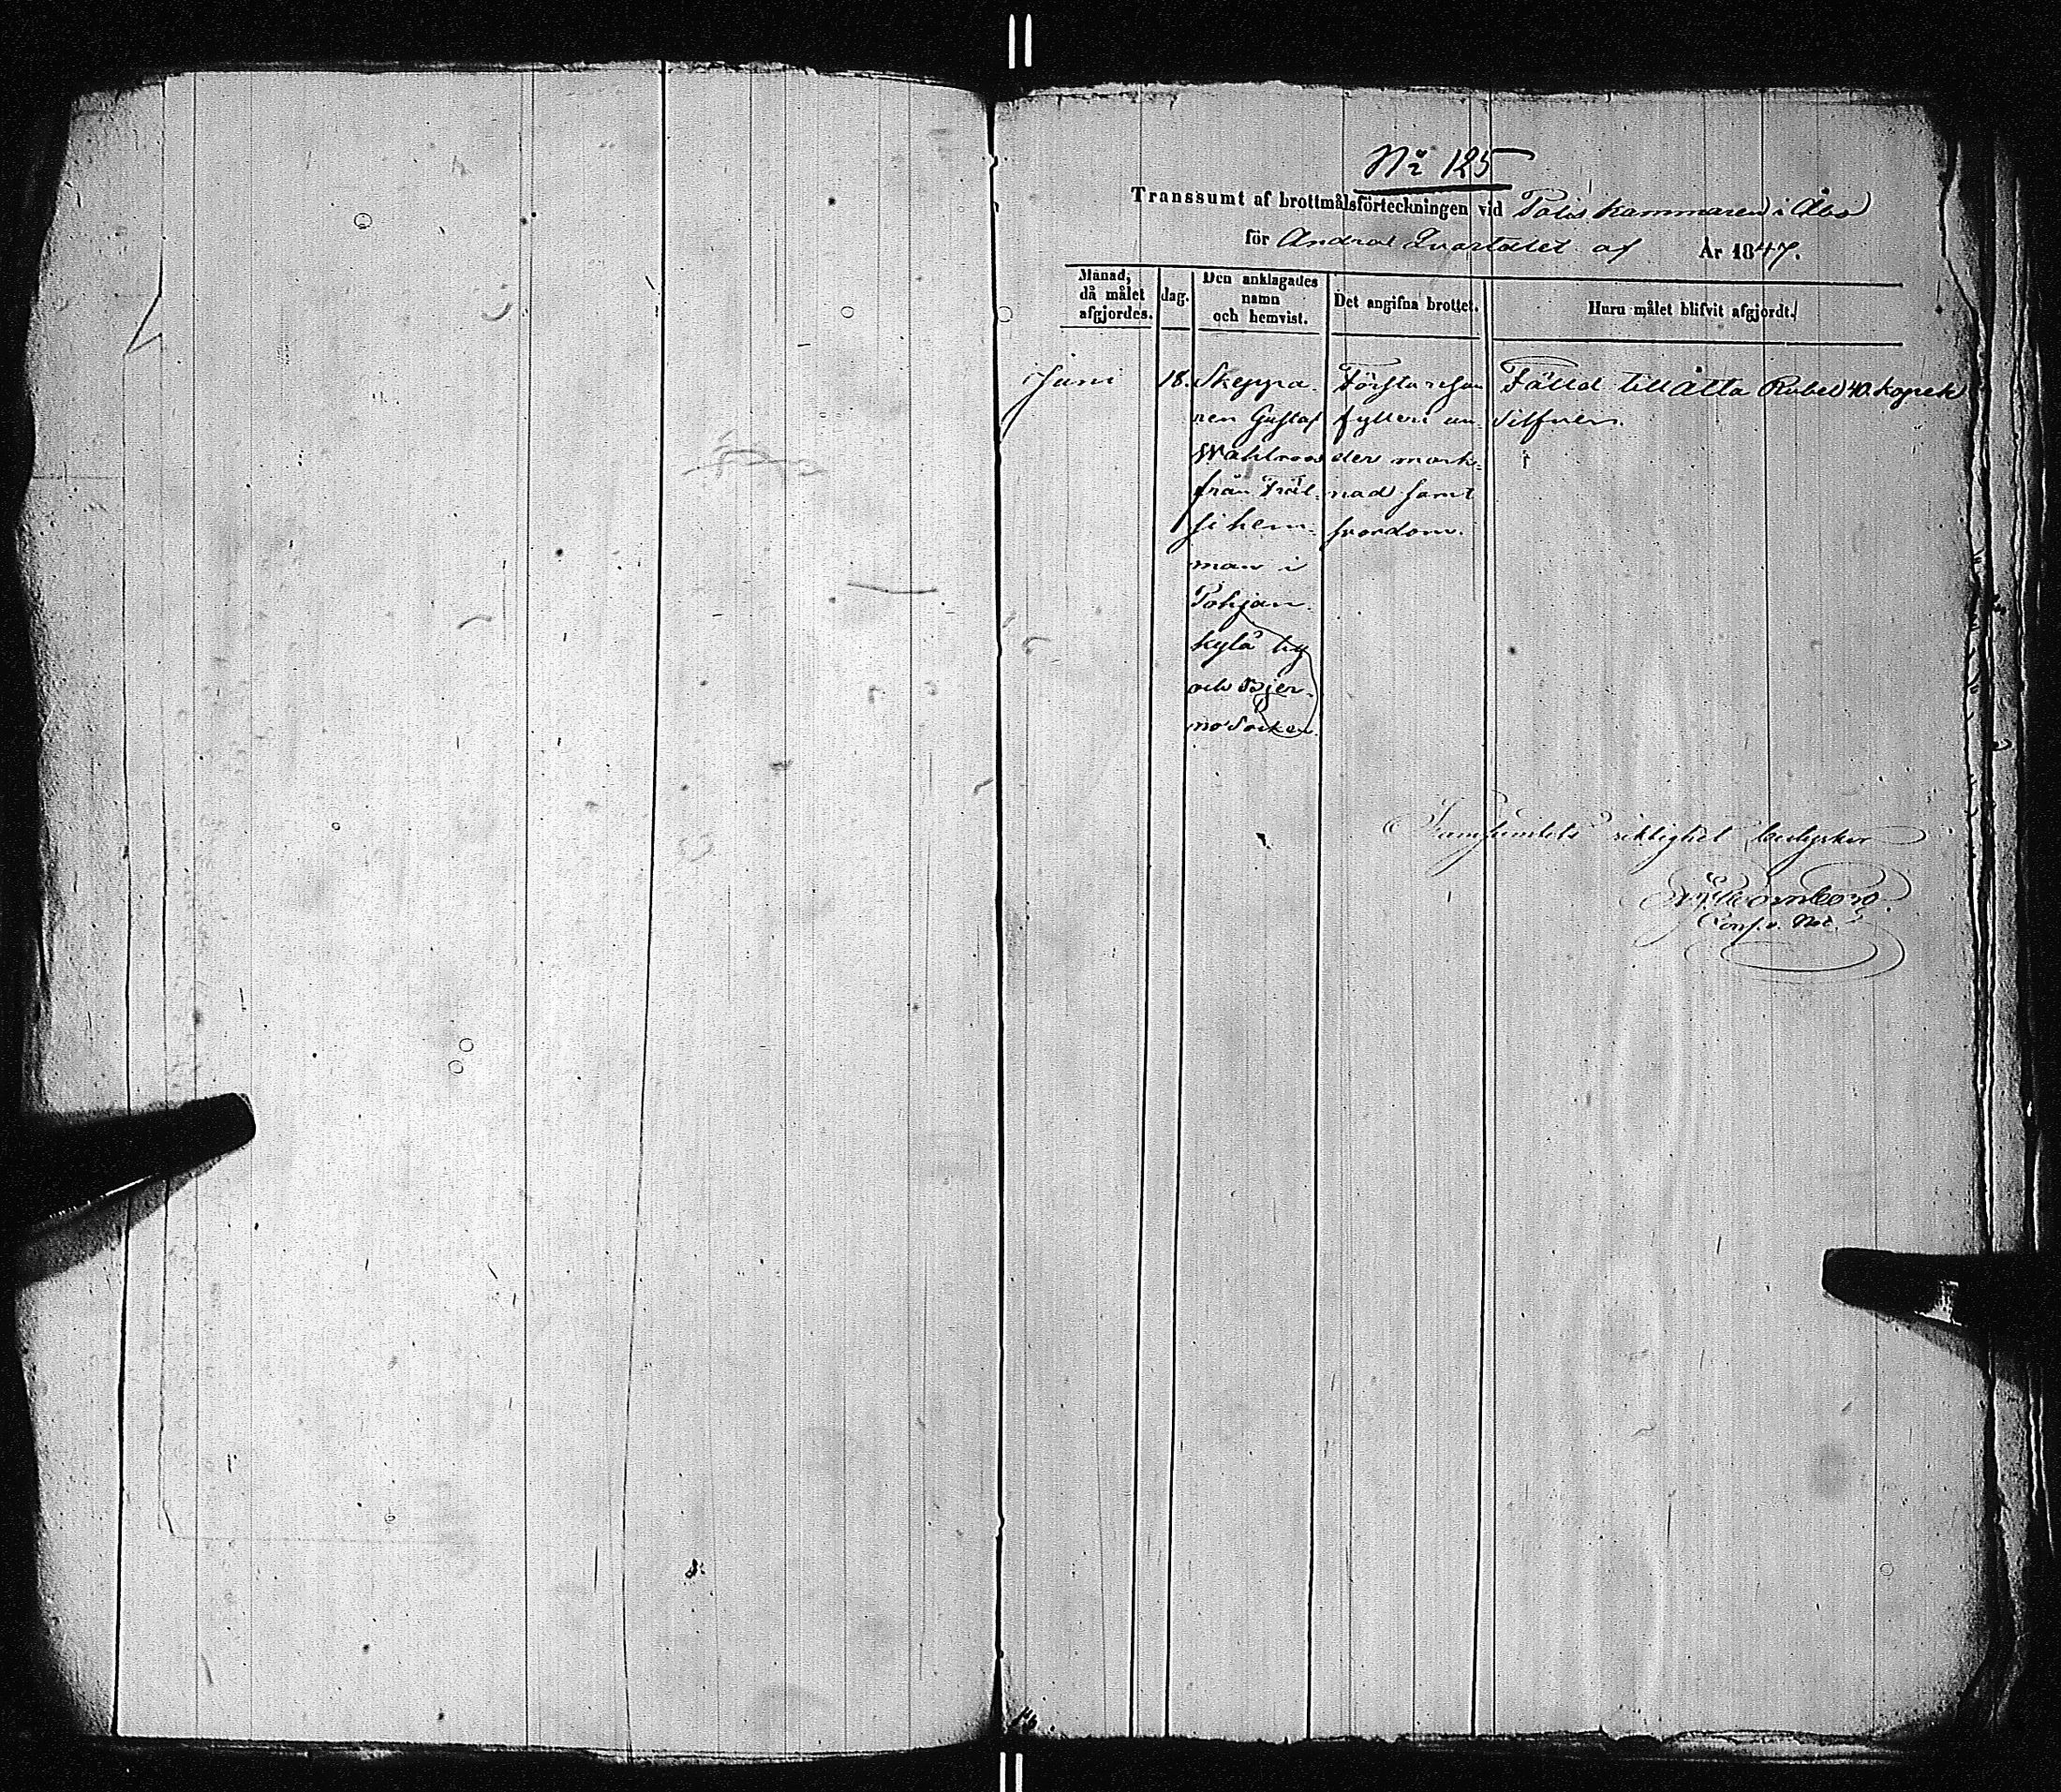 No 125
Transsumt af brottmålsförteckningen vid Poliskammaren i Åbo
för Andra Quartalet af År 1847.
Månad,
då målet
afgjordes.
dag.
Den anklagades
namn
och hemvist.
Det angifna brottet.
Huru målet blifvit afgjordt.
Juni
18.
Skeppa-
ren Gustaf
Wahlroos
från
si hem-
man i
Pohjan-
kylä by
och Bjer-
no Socken.
Första resan
fylleri un-
der mark-
nad samt
svordom.
Fälld till åtta Rubel 40. kopek
Silfver.
Transsumtets riktighet bestyrker